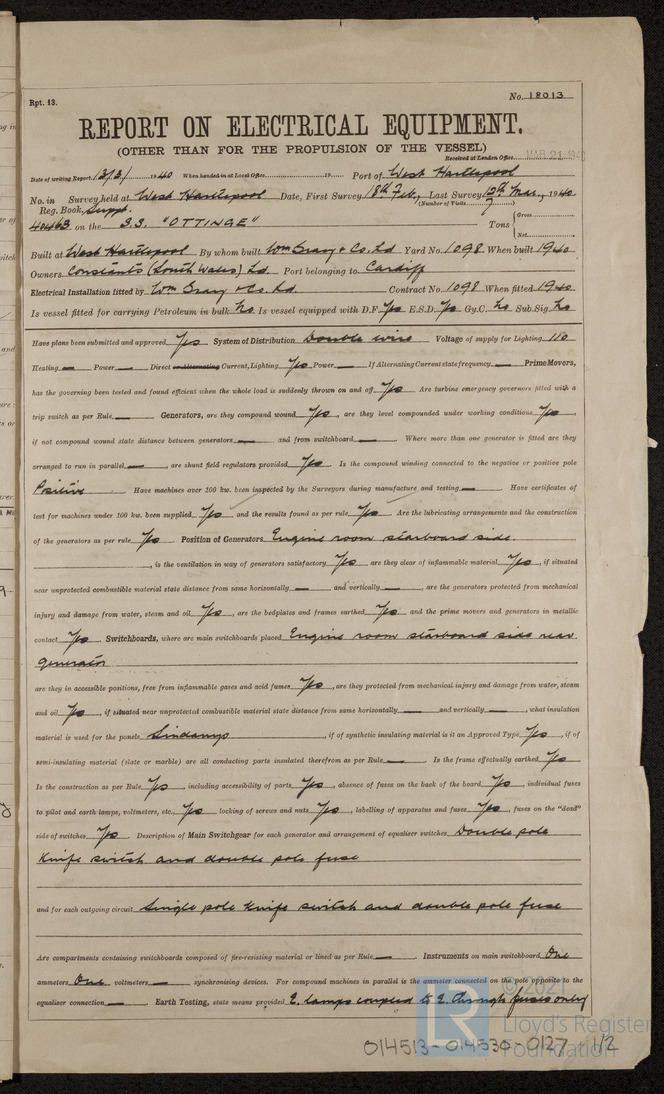 Rpt. 13.
No. 18013
REPORT ON ELECTRICAL EQUIPMENT.
(OTHER THAN FOR THE PROPULSION OF THE VESSEL)
Received at London Office MAR 21 1940
Date of writing Report 13/3/ 1940 When handed in at Local Office 19 Port of West Hartlepool
No. in Survey held at West Hartlepool Date, First Survey 18th Feb, Last Survey 12th Mar, 1940
Reg. Book. Suppt. (Number of Visits 7 )
40463 on the S.S. "OTTINGE" Tons { Gross
Net
Built at West Hartlepool By whom built Wm Gray & Co. Ld Yard No. 1098 When built 1940
Owners Constants (South Wales) Ld. Port belonging to Cardiff
Electrical Installation fitted by Wm Gray & Co. Ld. Contract No. 1098 When fitted 1940
Is vessel fitted for carrying Petroleum in bulk No Is vessel equipped with D.F. Yes E.S.D. Yes Gy.C. No Sub.Sig. No
Have plans been submitted and approved Yes System of Distribution Double wire Voltage of supply for Lighting 110
Heating — Power — Direct or Alternating Current, Lighting Yes Power — If Alternating Current state frequency — Prime Movers,
has the governing been tested and found efficient when the whole load is suddenly thrown on and off Yes Are turbine emergency governors fitted with a
trip switch as per Rule — Generators, are they compound wound Yes, are they level compounded under working conditions Yes,
if not compound wound state distance between generators — and from switchboard — Where more than one generator is fitted are they
arranged to run in parallel —, are shunt field regulators provided Yes Is the compound winding connected to the negative or positive pole
Positive Have machines over 100 kw. been inspected by the Surveyors during manufacture and testing — Have certificates of
test for machines under 100 kw. been supplied Yes and the results found as per rule Yes Are the lubricating arrangements and the construction
of the generators as per rule Yes Position of Generators Engine room starboard side.
, is the ventilation in way of generators satisfactory Yes are they clear of inflammable material Yes, if situated
near unprotected combustible material state distance from same horizontally — and vertically —, are the generators protected from mechanical
injury and damage from water, steam and oil Yes, are the bedplates and frames earthed Yes and the prime movers and generators in metallic
contact Yes Switchboards, where are main switchboards placed Engine room starboard side near
generator
are they in accessible positions, free from inflammable gases and acid fumes Yes, are they protected from mechanical injury and damage from water, steam
and oil Yes, if situated near unprotected combustible material state distance from same horizontally — and vertically —, what insulation
material is used for the panels Sindanyo, if of synthetic insulating material is it an Approved Type Yes, if of
semi-insulating material (slate or marble) are all conducting parts insulated therefrom as per Rule — Is the frame effectually earthed Yes
Is the construction as per Rule Yes, including accessibility of parts Yes, absence of fuses on the back of the board Yes, individual fuses
to pilot and earth lamps, voltmeters, etc. Yes locking of screws and nuts Yes, labelling of apparatus and fuses Yes, fuses on the "dead"
side of switches Yes Description of Main Switchgear for each generator and arrangement of equaliser switches Double pole
Knife switch and double pole fuse
and for each outgoing circuit Single pole Knife switch and double pole fuse
Are compartments containing switchboards composed of fire-resisting material or lined as per Rule — Instruments on main switchboard One
ammeters One voltmeters — synchronising devices. For compound machines in parallel is the ammeter connected on the pole opposite to the
equaliser connection — Earth Testing, state means provided 2 lamps coupled to E through fuses only
© 2021
LR Lloyd's Register
Foundation
014513-014530-0127 1/2